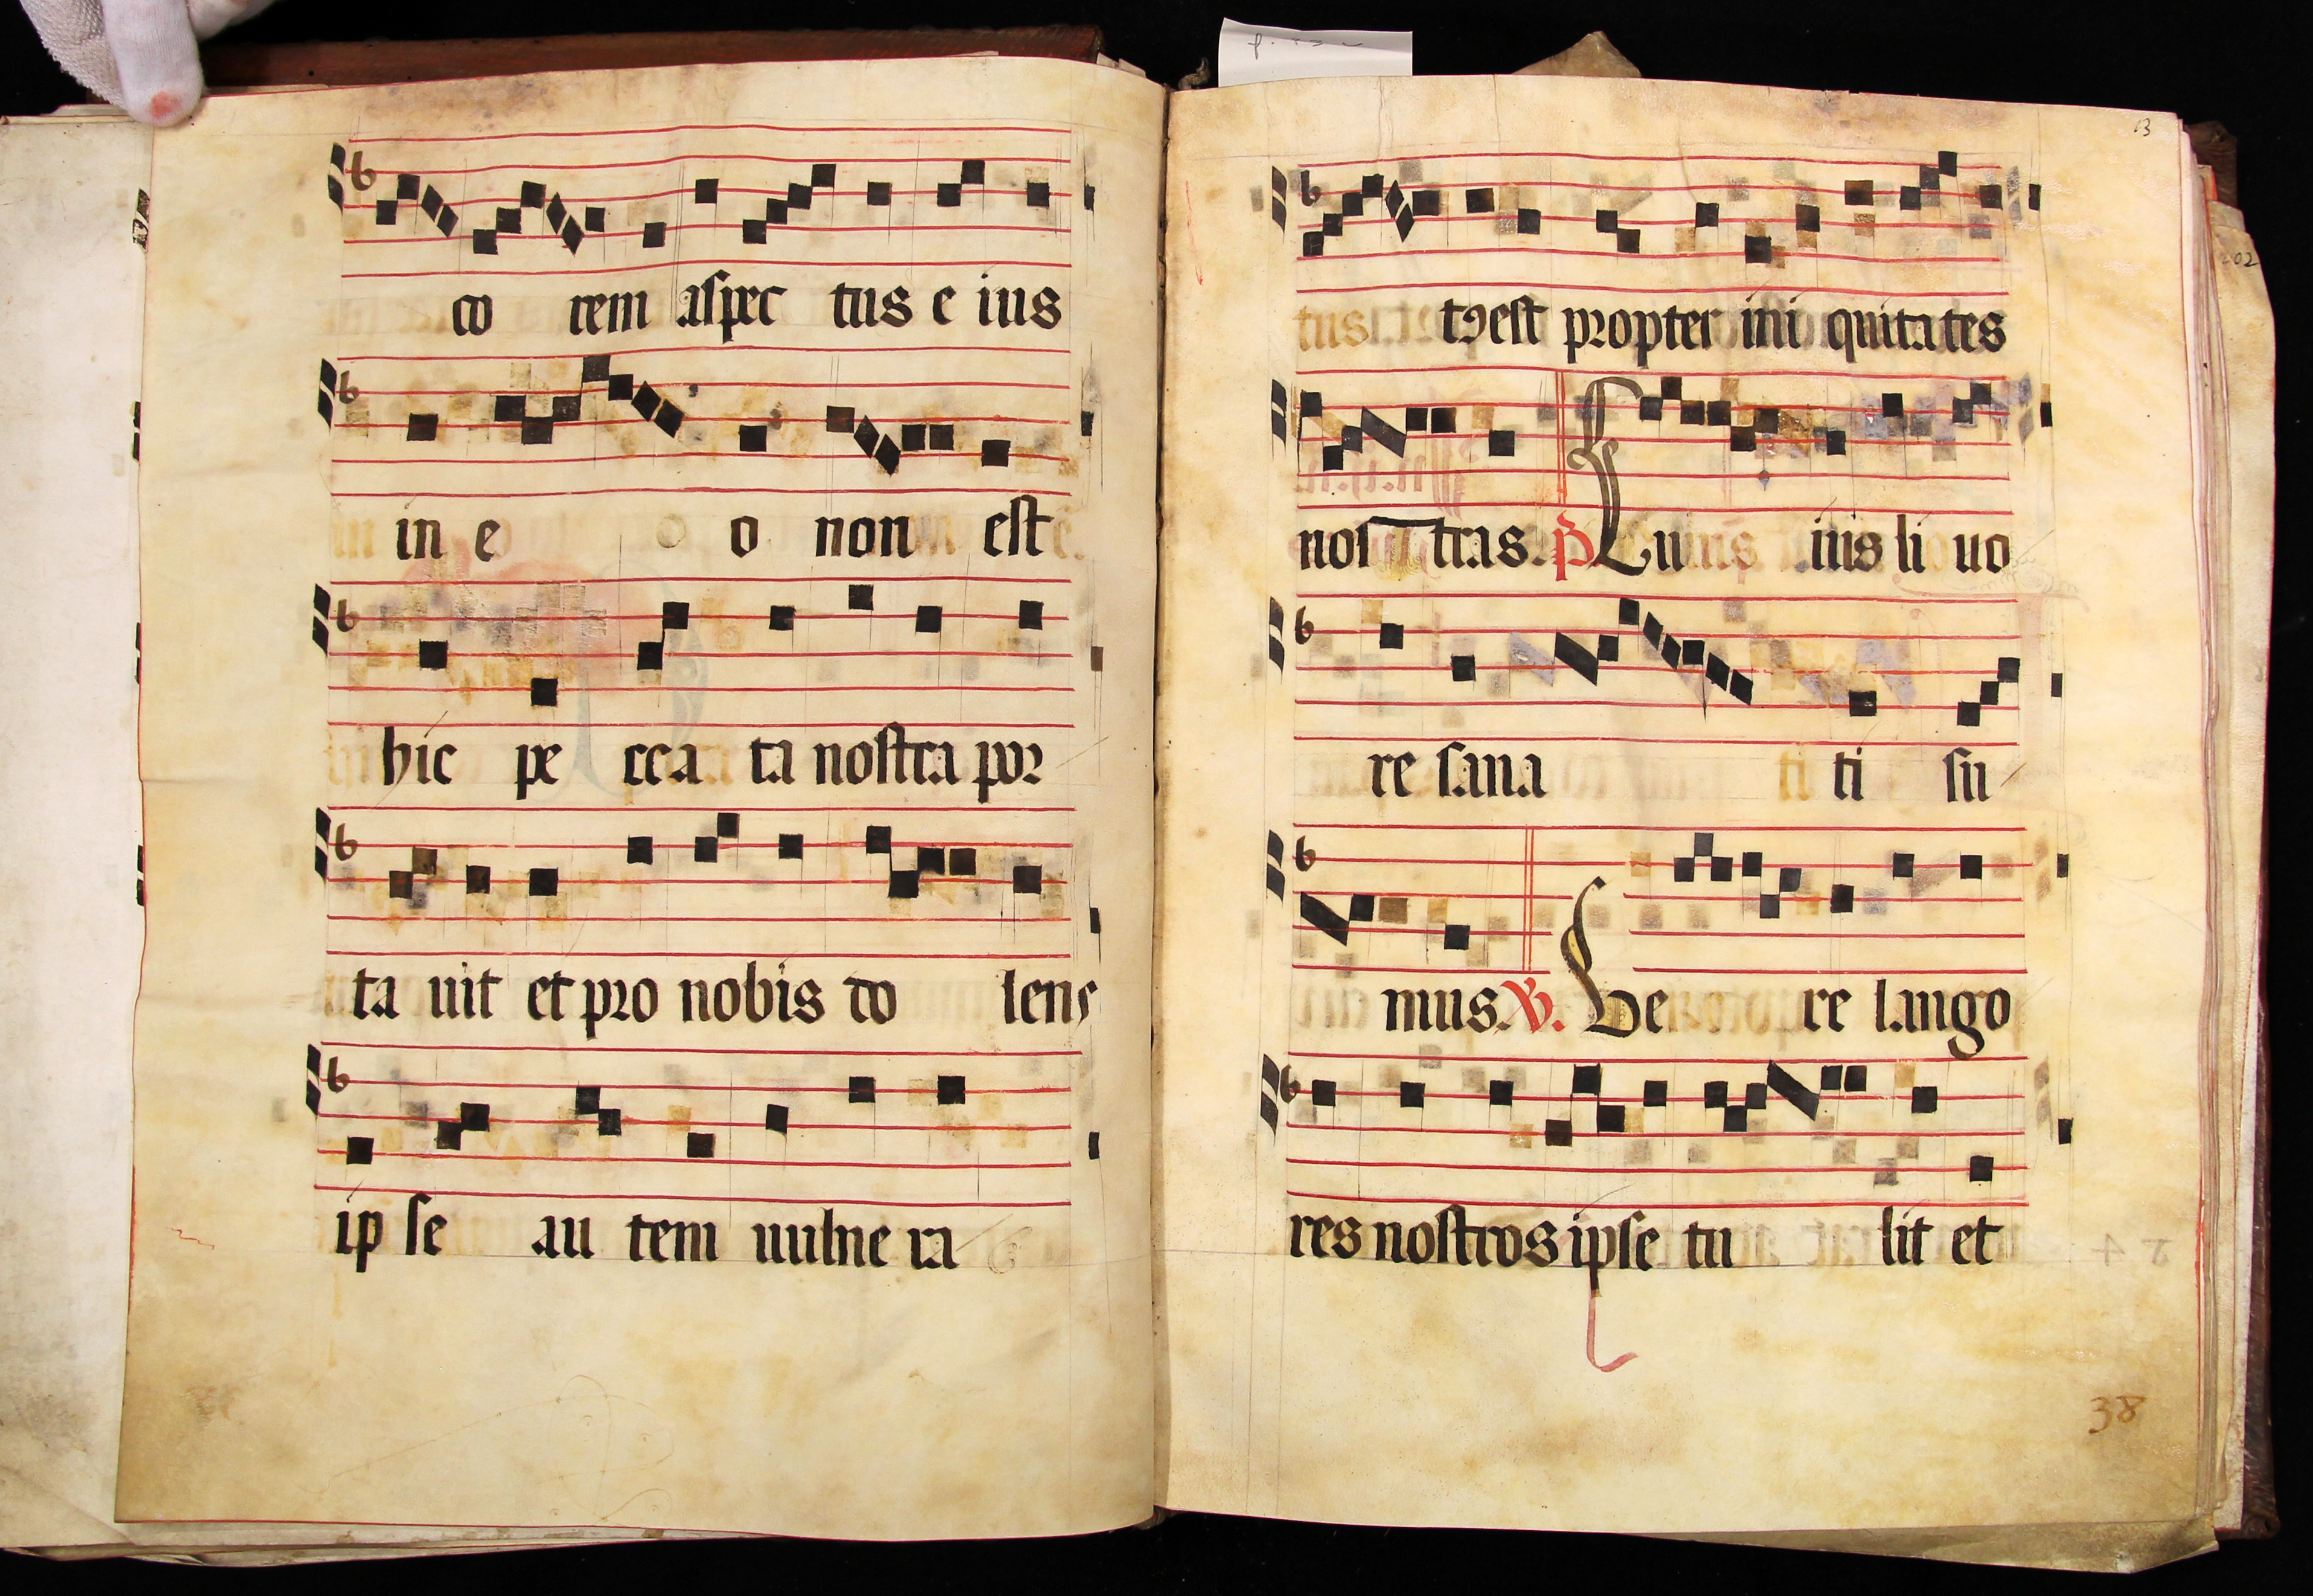 co rem aspec tus e ius
in e o non est
hic pe cca ta nostra por
ta uit et pro nobis do lens
ip se au tem uulne ra
13
tus tꝰ est propter ini quitates
nos tras. P Cuius ius li uo
re sana ti ti su
mus. V. Vere re lango
res nostros ipse tu lit et
38
202